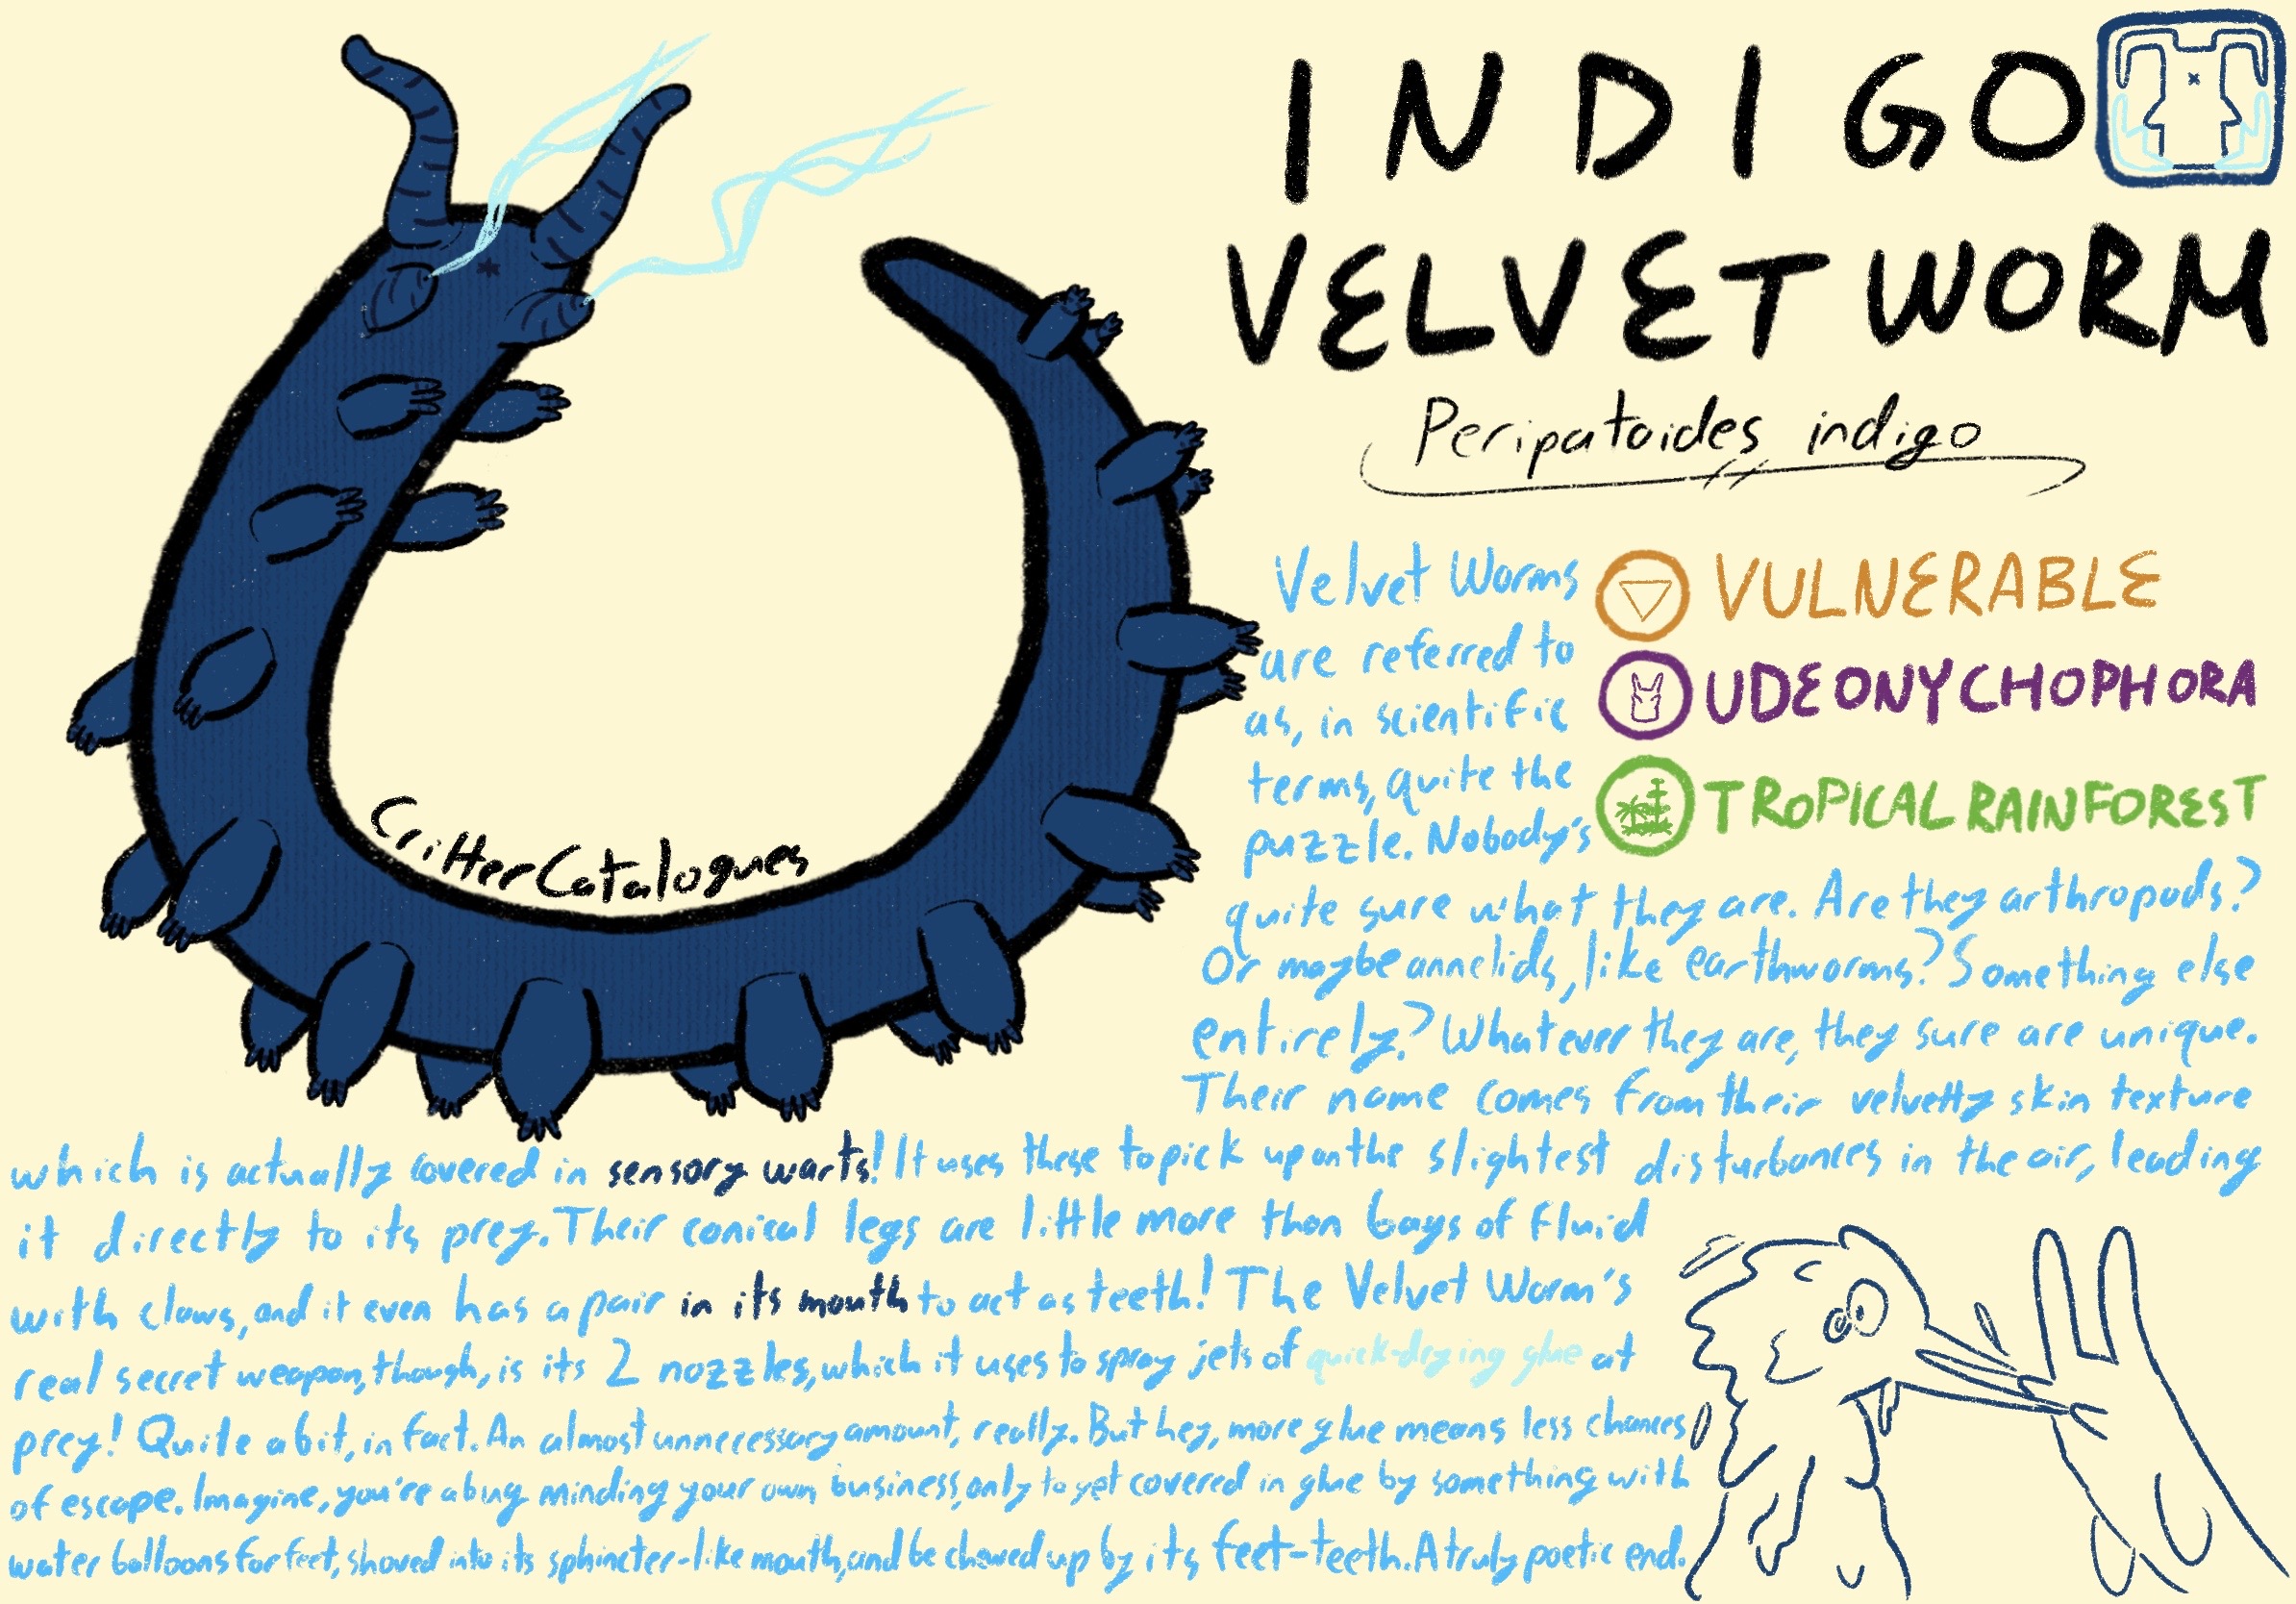 INDIGO
VELVET WORM
Peripatoides indigo
VULNERABLE
UDEONYCHOPHORA
TROPICAL RAINFOREST
CritterCatalogues
Velvet Worms
are referred to
as, in scientific
terms, quite the
puzzle. Nobody's
quite sure what they are. Are they arthropods?
Or maybe annelids, like earthworms? Something else
entirely? Whatever they are, they sure are unique.
Their name comes from their velvetty skin texture
which is actually covered in sensory warts! It uses these to pick up on the slightest disturbances in the air, leading
it directly to its prey. Their conical legs are little more than bags of fluid
with claws, and it even has a pair in its mouth to act as teeth! The Velvet Worm's
real secret weapon, though, is its 2 nozzles, which it uses to spray jets of quick-drying glue at
prey! Quite a bit, in fact. An almost unnecessary amount, really. But hey, more glue means less chances
of escape. Imagine, you're a bug minding your own business, only to get covered in glue by something with
water balloons for feet, shoved into its sphincter-like mouth, and be chewed up by its feet-teeth. A truly poetic end.